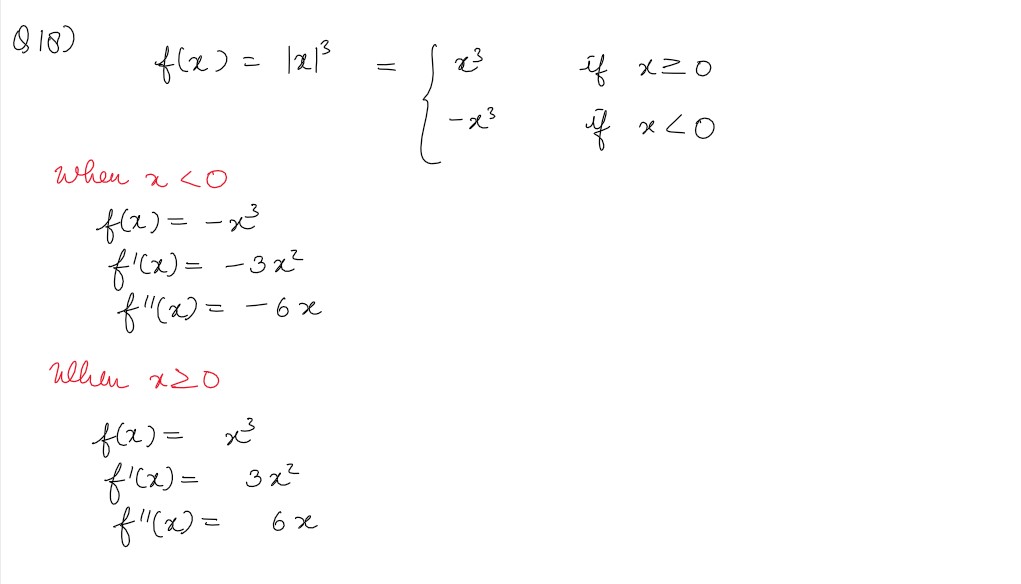 Q18) f(x) = |x|³ = { x³ if x ≥ 0
-x³ if x < 0
When x < 0
f(x) = -x³
f'(x) = -3x²
f''(x) = -6x
When x ≥ 0
f(x) = x³
f'(x) = 3x²
f''(x) = 6x